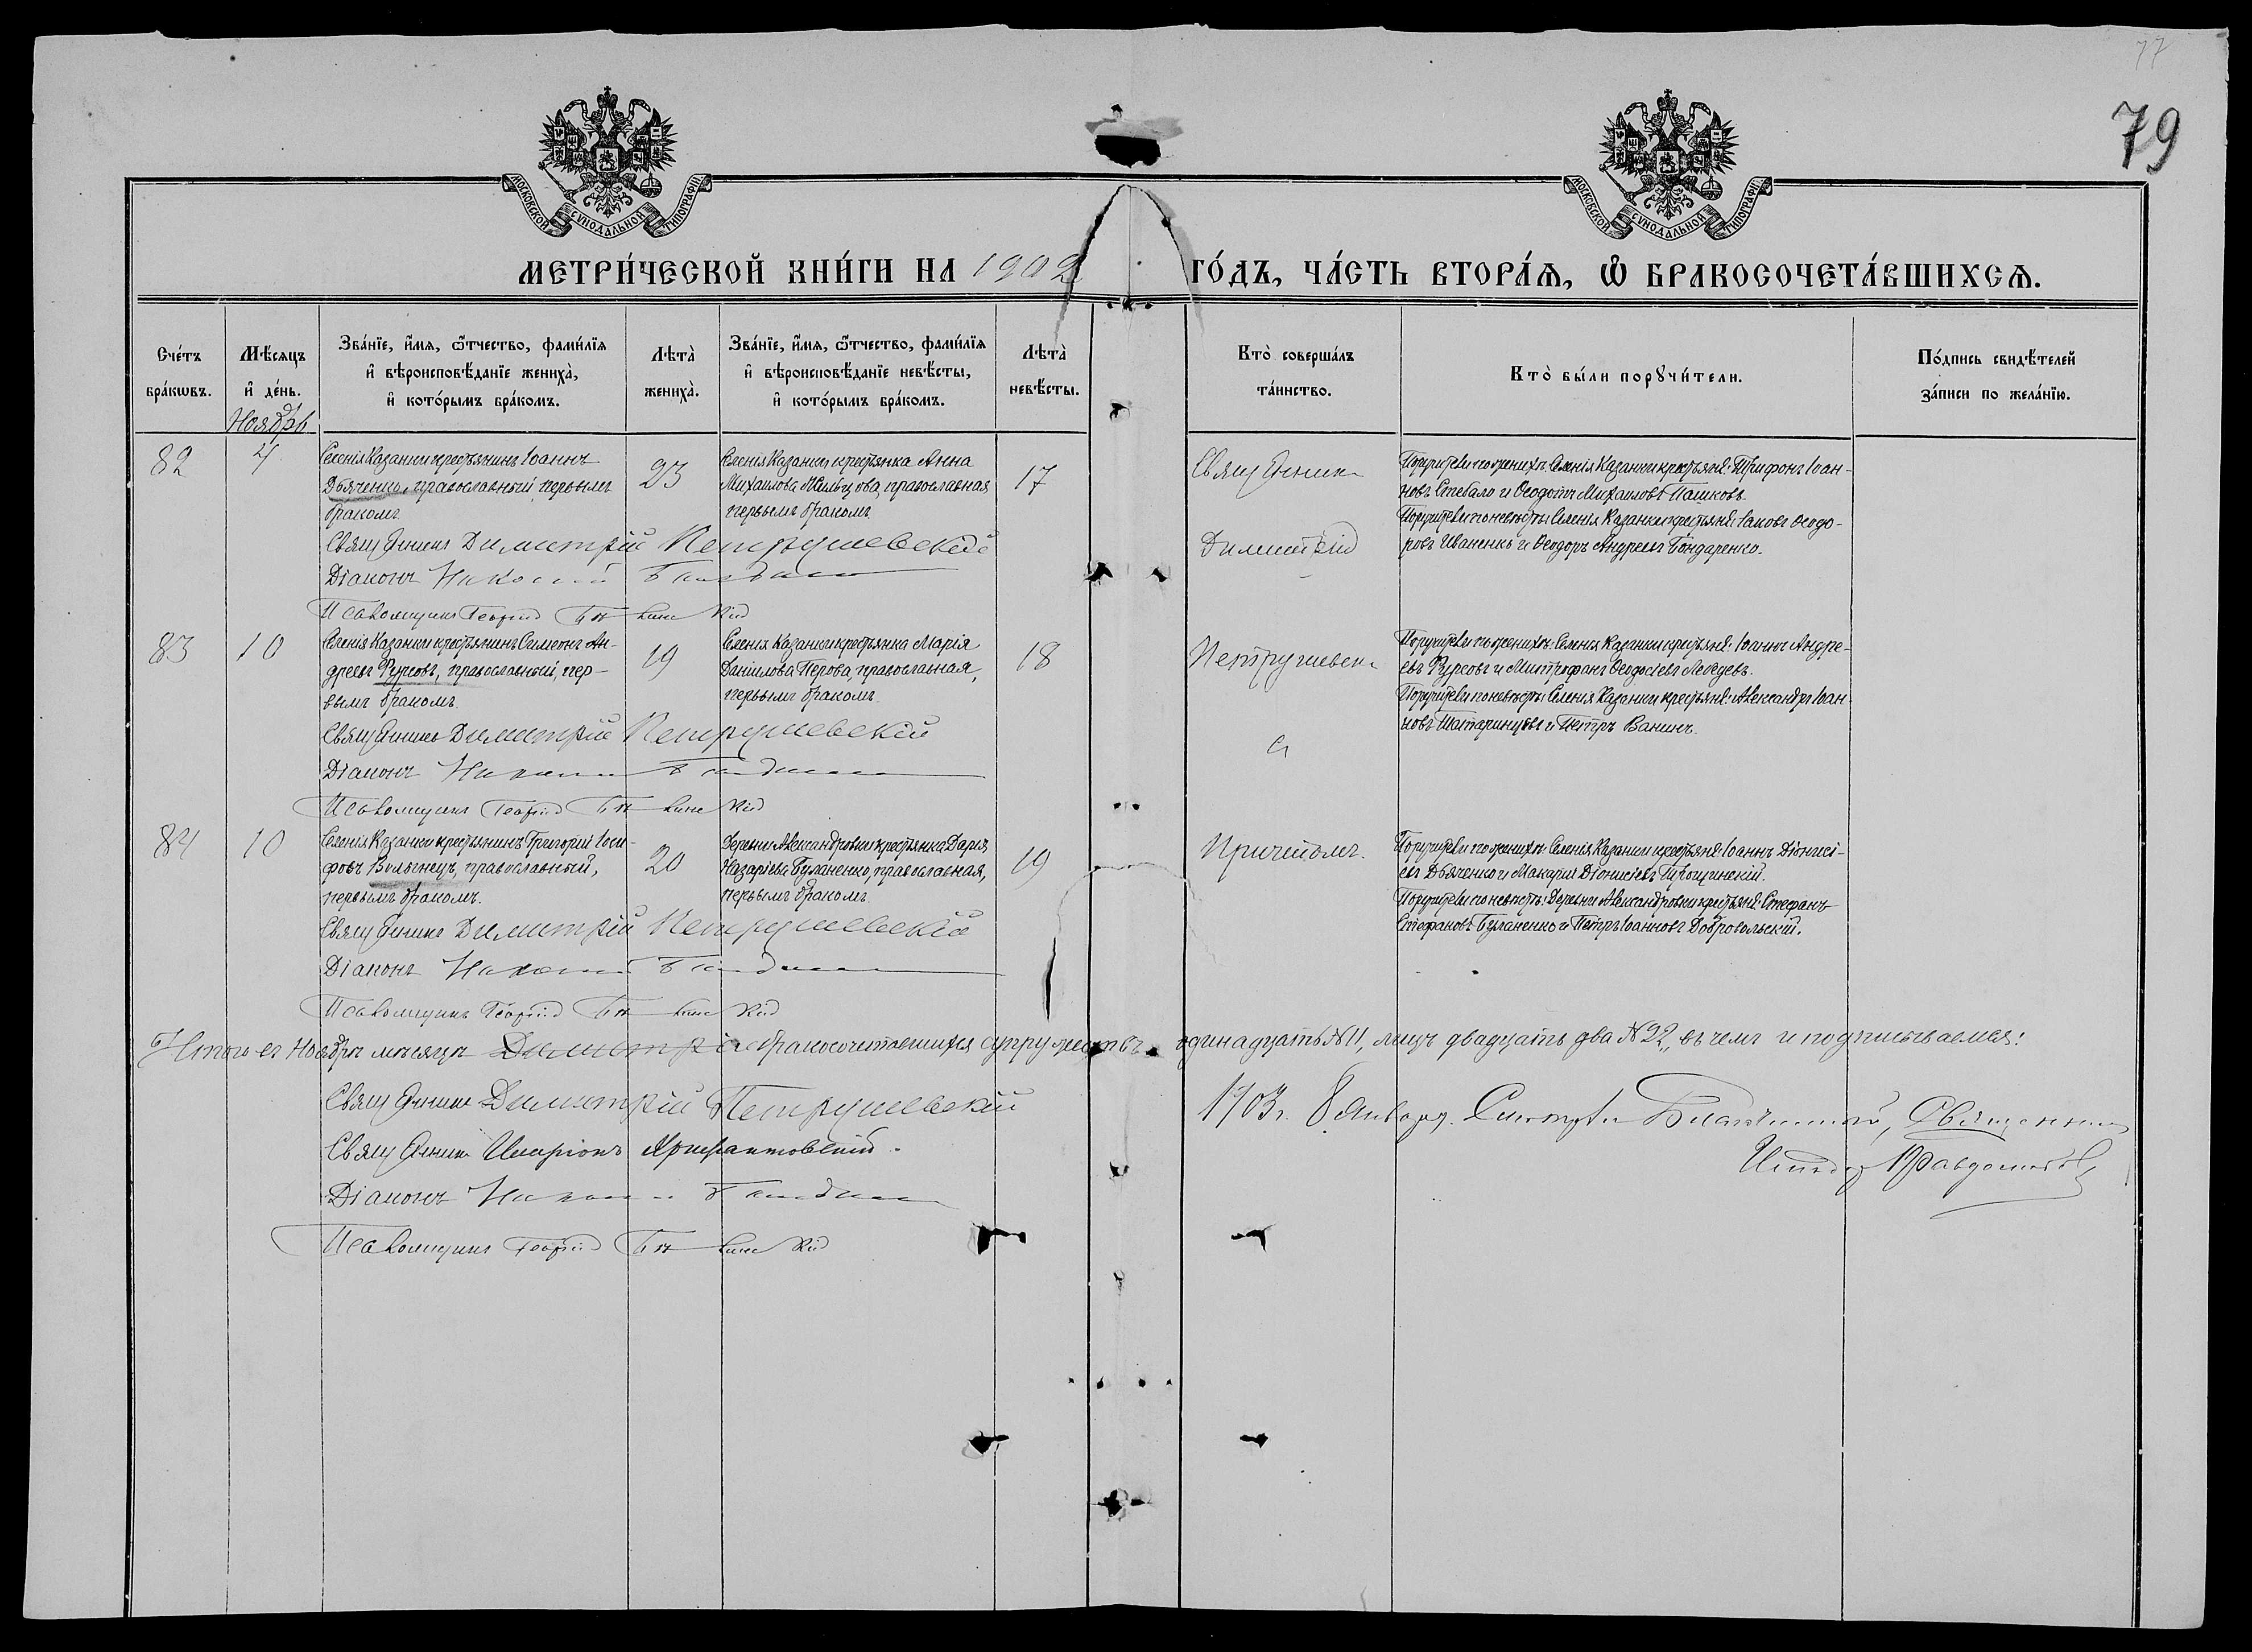 77
79
МОСКОВСКОЙ СѴНОДАЛЬНОЙ ТИПОГРАФІИ
МОСКОВСКОЙ СѴНОДАЛЬНОЙ ТИПОГРАФІИ
МЕТРИ́ЧЕСКОЙ КНИ́ГИ НА 1902 ГО́ДЪ, ЧА́СТЬ ВТОРА́Ѧ, Ѽ БРАКОСОЧЕТА́ВШИХСѦ.
Сче́тъ бра́кѡвъ.
Мѣ́сяцъ и҆ де́нь.
Зва́нїе, и҆́мѧ, ѻ҆́тчество, фами́лїѧ
и҆ вѣроисповѣ́данїе жениха̀,
и҆ кото́рымъ бра́комъ.
Лѣта̀ жениха̀.
Зва́нїе, и҆́мѧ, ѻ҆́тчество, фами́лїѧ
и҆ вѣроисповѣ́данїе невѣ́сты,
и҆ кото́рымъ бра́комъ.
Лѣта̀ невѣ́сты.
Кто̀ соверша́лъ та́инство.
Кто̀ бы́ли порꙋчи́тели.
По́дпись свидѣ́телей за́писи по жела́нїю.
Ноябрь
82
4
Селенія Казанки крестьянинъ Іоаннъ
Дьяченко, православный, первымъ
бракомъ.
23
Селенія Казанки крестьянка Анна
Михаилова Мальцова, православная
первымъ бракомъ.
17
Священник
Димитрій
Поручители по женихѣ: Селенія Казанки крестьяне: Трифонъ Іоан-
новъ Стебало и Ѳеодотъ Михаиловъ Пашковъ.
Поручители по невѣстѣ: Селенія Казанки крестьяне: Іаковъ Ѳеодо-
ровъ Иваненко и Ѳеодоръ Андреевъ Бондаренко.
Священникъ Димитрій Петрушевскій
Діаконъ
Псаломщикъ Георгій
83
10
Селенія Казанки крестьянинъ Симеонъ Ан-
дреевъ Фурсовъ, православный, пер-
вымъ бракомъ.
19
Селенія Казанки крестьянка Марія
Даніилова Перова, православная,
первымъ бракомъ.
18
Петрушевск
съ
Поручители по женихѣ: Селенія Казанки крестьяне: Іоаннъ Андре-
евъ Фурсовъ и Митрофанъ Ѳеодосіевъ Лебедевъ.
Поручители по невѣстѣ: Селенія Казанки крестьяне: Александръ Іоан-
новъ Шатаринцевъ и Петръ Ванинъ.
Священникъ Димитрій Петрушевскій
Діаконъ
Псаломщикъ Георгій
84
10
Селенія Казанки крестьянинъ Григорій Іоси-
фовъ Волынецъ, православный,
первымъ бракомъ.
20
Деревни Александровки крестьянка Дарія
Назаріева Буланенко, православная,
первымъ бракомъ.
19
Причтомъ.
Поручители по женихѣ: Селенія Казанки крестьяне: Іоаннъ Діонисі-
евъ Дьяченко и Макарій Діонисіевъ Трощинскій.
Поручители по невѣстѣ: Деревни Александровки крестьяне: Стефанъ
Стефановъ Буланенко и Петръ Іоанновъ Добровольскій.
Священникъ Димитрій Петрушевскій
Діаконъ
Псаломщикъ Георгій
Итого въ Ноябрѣ мѣсяцѣ бракосочитавшихся супружествъ одинадцать №11, лицъ двадцать два №22, въ чемъ и подписываемся:
Священникъ Димитрій Петрушевскій
Священникъ Иларіонъ Хрисантовскій.
Діаконъ
Псаломщикъ Георгій
1903 г. 8 Января. Смотрѣлъ Благочинный, Священник